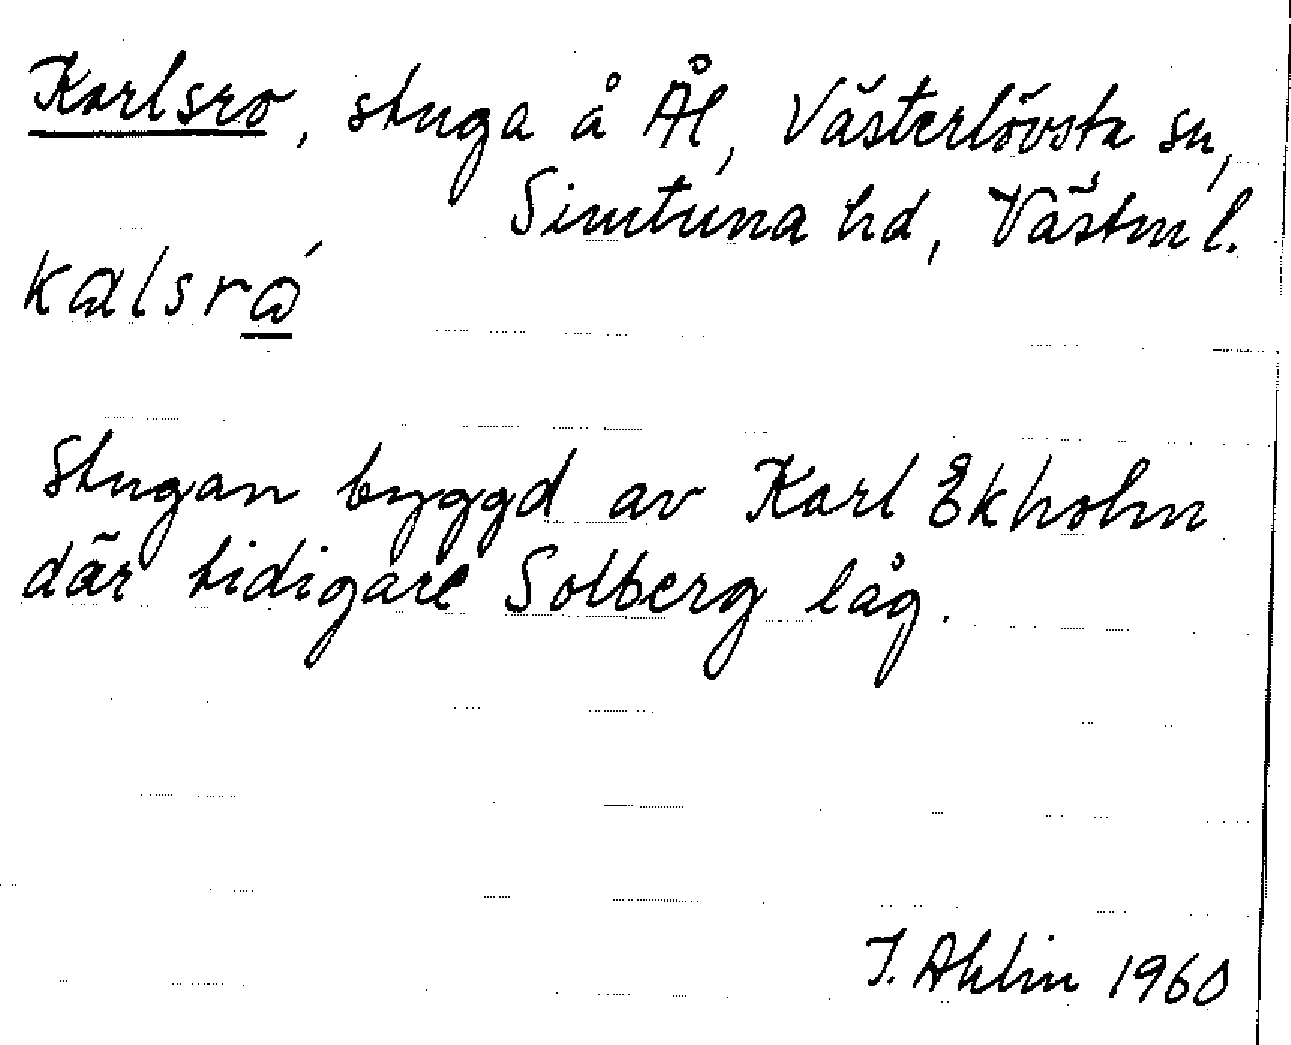 Karlsro, stuga å Ål, Västerlövsta sn,
Simtuna hd, Västml.
kalsrω´
Stugan byggd av Karl Ekholm
där tidigare Solberg låg.
I. Ahlin 1960